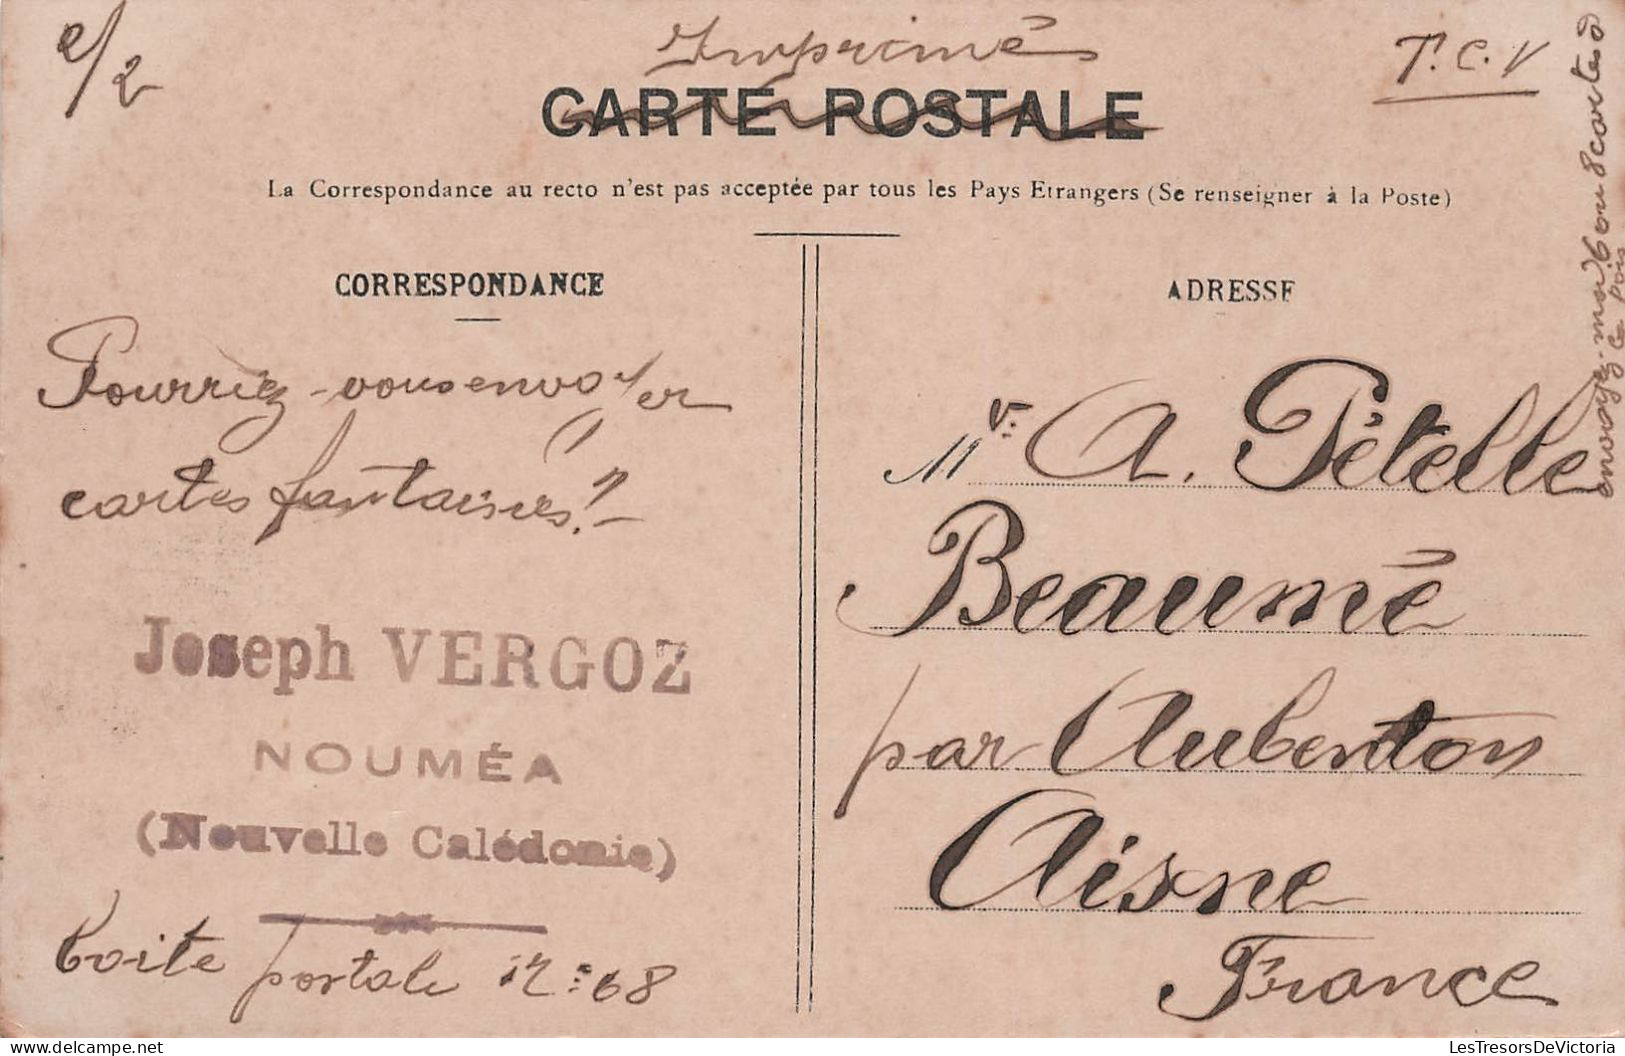 e/2
Imprimé
T.C.V
CARTE POSTALE
La Correspondance au recto n'est pas acceptée par tous les Pays Etrangers (Se renseigner à la Poste)
CORRESPONDANCE
Pourriez-vous envoyer
cartes fantaisies?
Joseph VERGOZ
NOUMÉA
(Nouvelle Calédonie)
Boite postale N: 68
ADRESSE
Mr: A. Pételle
Beaumé
par Aubenton
Aisne
France
envoyez-moi 6 ou 8 cartes